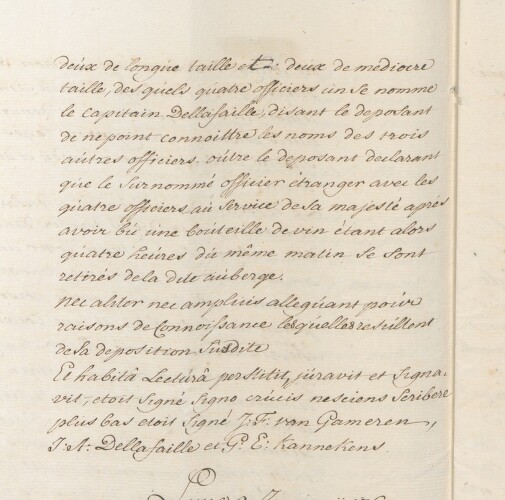 deux de longue taille et: deux de mediocre
taille, des quels quatre officiers un se nomme
le Capitain Dellafaille, disant le deposant
de ne point connoittre les noms des trois
autres officiers, outre le deposant declarant
que le Surnommé officier étranger avec les
quatre officiers au Service de sa majesté aprés
avoir bú une bouteille de vin étant alors
quatre heures du même matin se sont
retirés de la dite auberge.
nec aliter nec ampluis allequant pour
raisons de Connoissance lesquelles resultent
de sa deposition Susdite
Et habitâ Lecturâ perstitit, juravit et signa-
vit, etoit Signé Signo crucis nesciens Scribere
plus bas etoit Signé J: F: van Gameren,
J: A: Dellafaille et P: E: Kannekens.